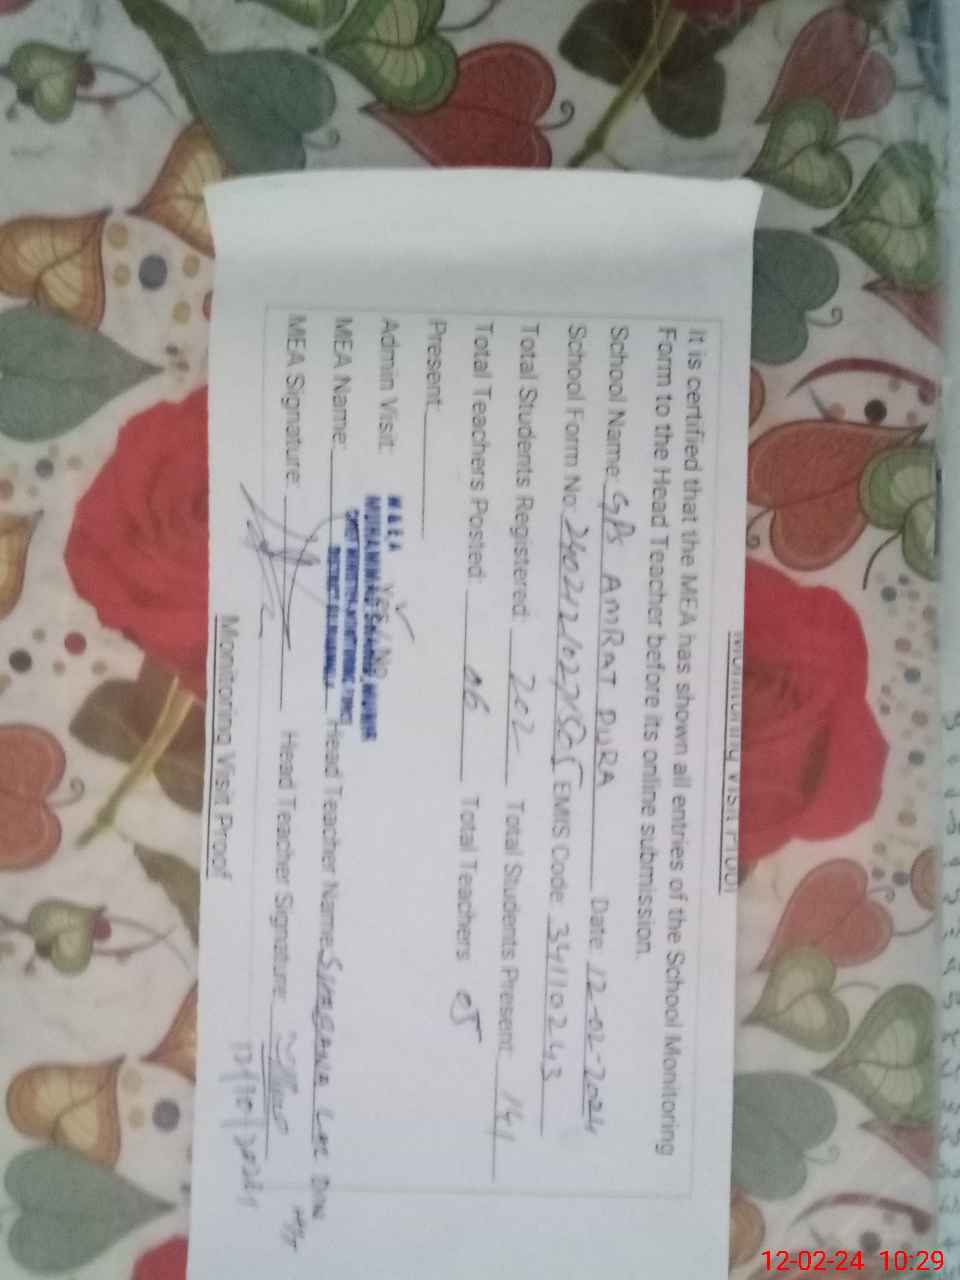 Monitoring Visit Proof
It is certified that the MEA has shown all entries of the School Monitoring
Form to the Head Teacher before its online submission.
School Name: GPS AMRAT PURA Date: 12-02-2024
School Form No: EMIS Code 34110243
Total Students Registered: 202 Total Students Present 141
Total Teachers Posted: 06 Total Teachers 05
Present
Admin Visit: Yes / No
M & E A
MUHAMMAD
MEA Name: Head Teacher Name:
MEA Signature: Head Teacher Signature:
Monitoring Visit Proof
12-02-24 10:29